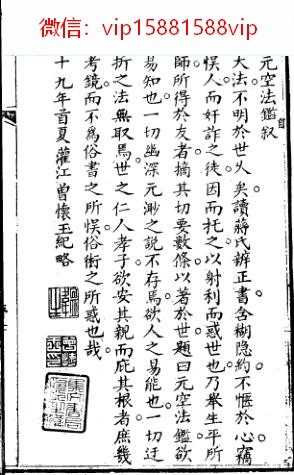 微信：vip15881588vip
元空法鑑叙
大法不明於世久矣讀蔣氏辨正書含糊隐約不愜於心竊
悮人而奸詐之徒因而托之以射利而惑世也乃舉生平所
師所得於友者摘其切要數條以著於世題曰元空法鑑欲
易知也一切幽深元渺之説不存焉欲人之易能也一切迂
折之法無取焉世之仁人孝子欲安其親而庇其根者庶幾
考鏡而不為俗書之所悮俗術之所惑也哉
十九年首夏灌江曽懷玉紀略